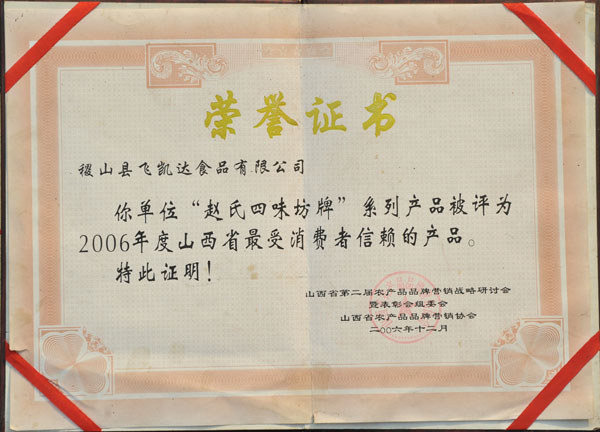 荣誉证书
稷山县飞凯达食品有限公司
你单位“赵氏四味坊牌”系列产品被评为
2006年度山西省最受消费者信赖的产品。
特此证明!
山西省第二届农产品品牌营销战略研讨会
暨表彰会组委会
山西省农产品品牌营销协会
二00六年十二月